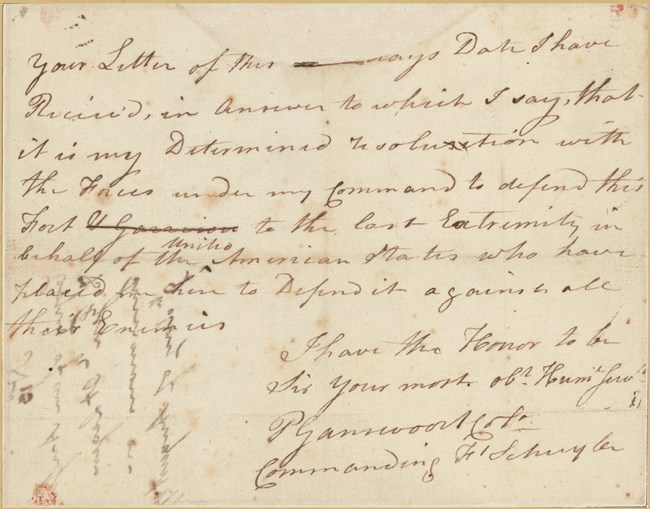 Your Letter of this days Date I have
Receiv'd, in Answer to which I say, that
it is my Determined resolution with
the Forces under my Command to defend this
Fort & Garrison to the last Extremity in
behalf of the United American States who have
placed me here to Defend it against all
their Enemies
I have the Honor to be
Sir Your most obt. Humle Serv
P Gansevoort Colo
Commanding Ft Schuyler